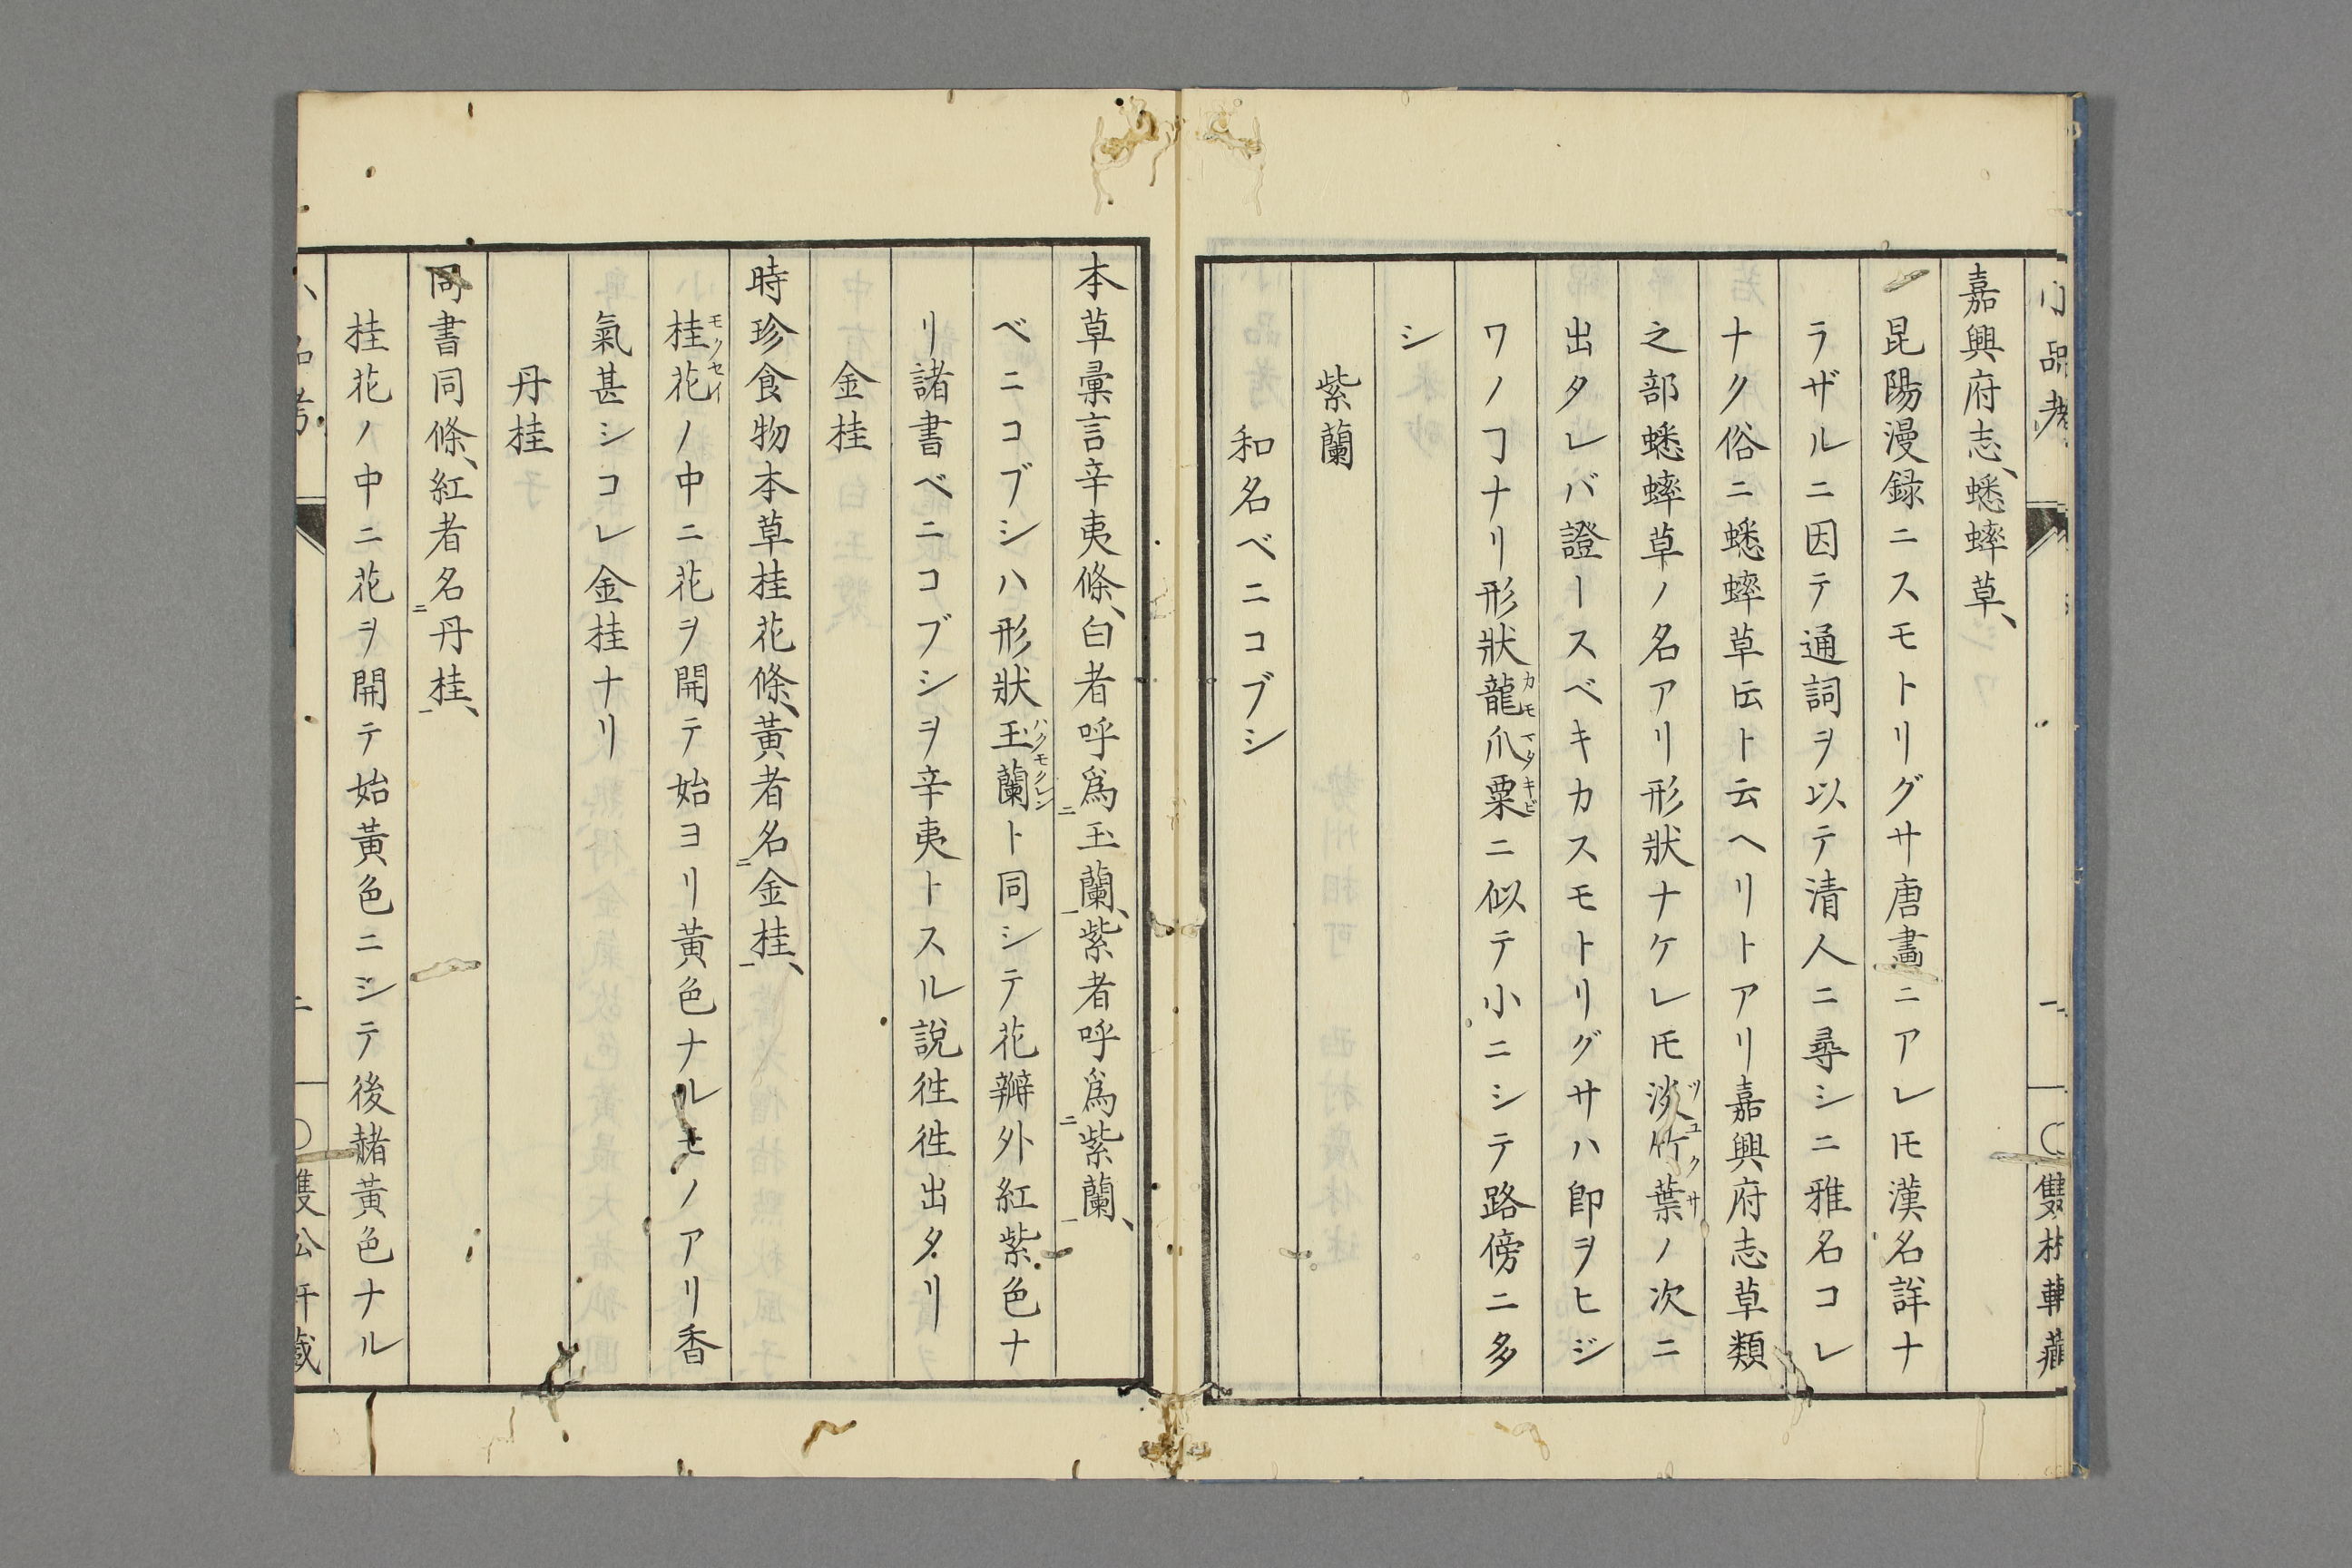 小品考
嘉興府志、蟋蟀草、
昆陽漫録ニスモトリグサ唐畵ニアレ𪜈漢名詳ナ
ラザルニ因テ通詞ヲ以テ清人ニ尋シニ雅名コレ
ナク俗ニ蟋蟀草𫝂ト云ヘリトアリ嘉興府志草類
之部蟋蟀草ノ名アリ形狀ナケレ𪜈淡竹葉ノ次ニ
ツユクサ
出タレバ證ースベキカスモトリグサハ即ヲヒジ
ワノヿナリ形狀龍爪粟ニ似テ小ニシテ路傍ニ多
カモマタキビ
シ
紫蘭
和名ベニコブシ
本草彙言辛夷條、白者呼爲㆓玉蘭㆒、紫者呼爲㆓紫蘭㆒、
ベニコブシハ形狀玉蘭ト同シテ花瓣外紅紫色ナ
ハクモクレン
リ諸書ベニコブシヲ辛夷トスル説徃徃出タリ
金桂
時珍食物本草桂花條、黃者名㆓金桂㆒、
桂花ノ中ニ花ヲ開テ始ヨリ黃色ナルモノアリ香
モクセイ
氣甚シコレ金桂ナリ
丹桂
同書同條、紅者名㆓丹桂㆒、
桂花ノ中ニ花ヲ開テ始黃色ニシテ後赭黃色ナル